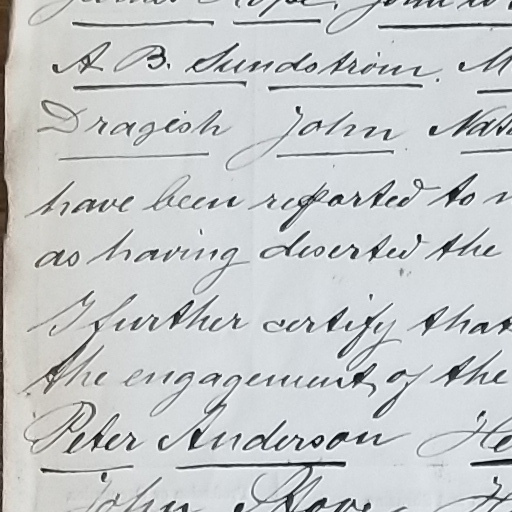 A. B. Sundström. M
Dragish John Nas
have been reported to
as having deserted the
I further certify that
the engagement, of the
Peter Anderson He
John